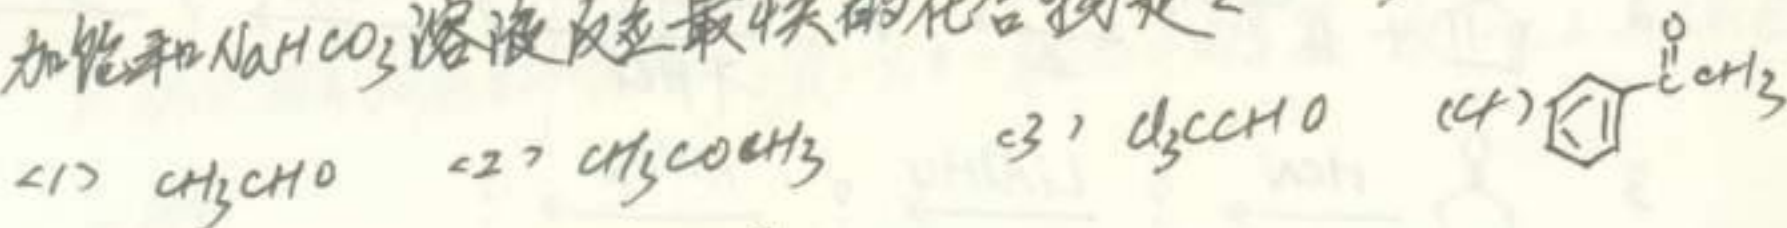 加饱和NaHCO₃溶液反应最快的化合物是
<1> CH₃CHO <2> CH₃COCH₃ <3> Cl₃CCHO (4) O C CH₃